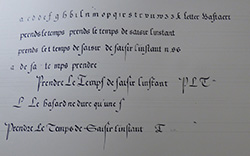 a c d e f g h b i l n m o p q r s t v u n s s & letter Bastaert
prends le temps prends le temps de saisir linstant
prends le t temps de saisir de saisir linstant n s s
a de sa te mps prendre
Prendre Le Temps de saisir linstant P L T
L Le hasard ne dure qu une s
Prendre Le Temps de Saisir linstant T